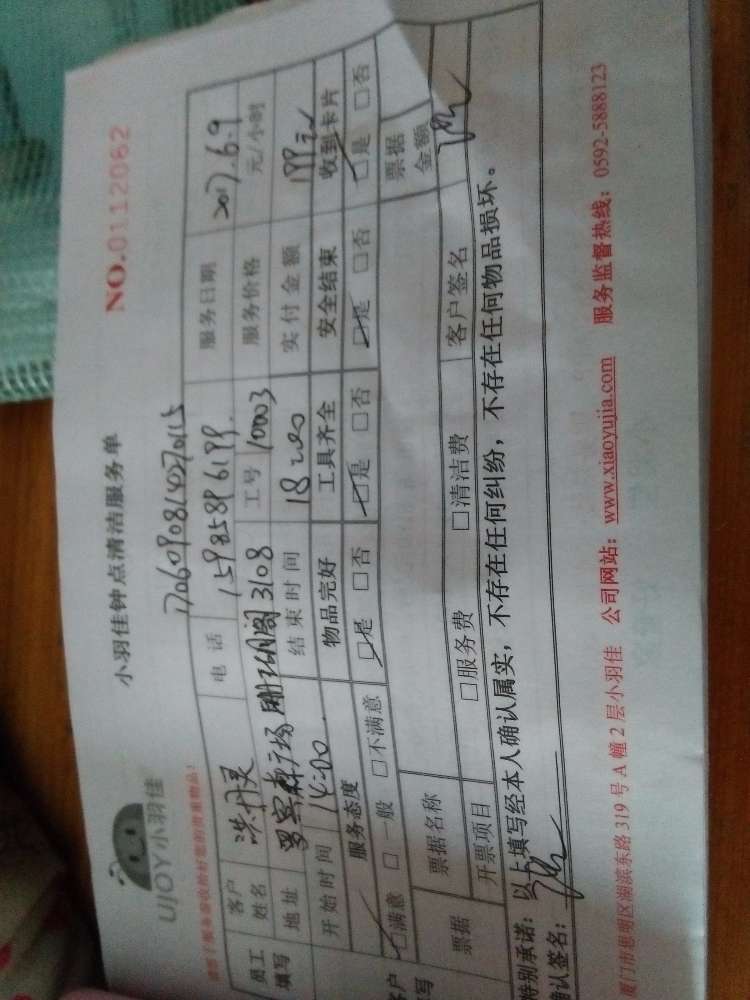 UJOY小羽佳
小羽佳钟点清洁服务单
NO.0112062
客户姓名 洪丹灵 电话 15985896199 服务日期 2017.6.9
员工填写
地址 3108 工号 10003 服务价格 元/小时
开始时间 14:00 结束时间 18:00 实付金额 199元
服务态度 物品完好 工具齐全 安全结束 收到卡片
□满意 □一般 □不满意 □是 □否 □是 □否 □是 □否 □是 □否
票据 票据名称 票据金额
开票项目 □服务费 □清洁费 客户签名
特别承诺：以上填写经本人确认属实，不存在任何纠纷，不存在任何物品损坏。
确认签名：
厦门市思明区湖滨东路319号A幢2层小羽佳 公司网站：www.xiaoyujia.com 服务监督热线：0592-5888123